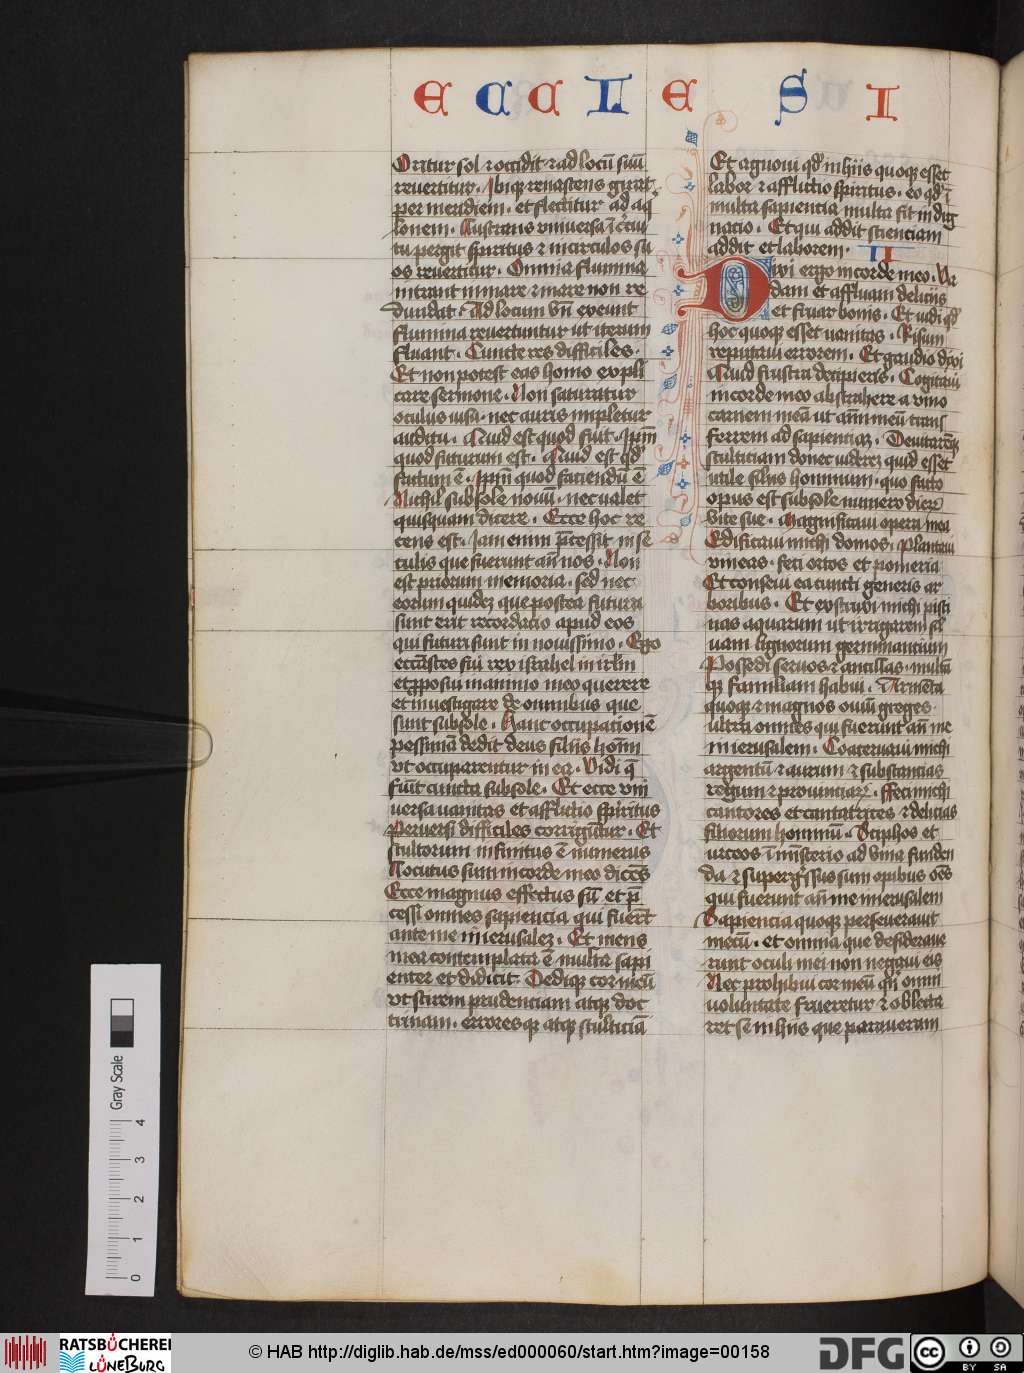 E C C L E S I
Oritur sol ⁊ occidit ⁊ ad locū suū
reuertitur . Ibiq renascens girat
per meridiem . et flectitur ad aq
lonem . Lustrans vniuersa ī c̄cui
tu pergit spiritus ⁊ in circulos su
os reuertitur . Omnia flumina
intrant in mare ⁊ mare non re
dundat . Ad locum vn̄ exeunt
flumina reuertuntur ut iterum
fluant . Cuncte res difficiles .
Et non potest eas homo expli
care sermone . Non saturatur
oculus uisu . nec auris impletur
auditu . Quid est quod fuit . Ipm̄
quod futurum est . Quid est qd
factum ē . Ipm̄ quod faciendū ē
Nichil sub sole nouū . nec ualet
quisquam dicere . Ecce hoc re
cens est . Iam enim p̄cessit in se
culis que fuerunt an̄ nos . Non
est priorum memoria . sed nec
eorum quidez que postea futura
sunt erit recordacio apud eos
qui futuri sunt in nouissimo . Ego
eccl̄astes fui rex israhel in irl̄m
et p̱posui in animo meo querere
et inuestigare de omnibus que
sunt sub sole . Hanc occupationē
pessimā dedit deus filiis hom̄
vt occuparentur in ea . Vidi q̄
fūt cuncta sub sole . Et ecce vni
uersa uanitas et afflictio spiritus
Peruersi difficiles corrigūtur . Et
stultorum infinitus ē numerus
Locutus sum in corde meo dicēs
Ecce magnus effectus sū et p̄
cessi omnes sapiencia qui fuerūt
ante me in ierusalez . Et mens
mea contemplata ē multa sapi
enter et didicit . Dedique cor meū
vt scirem prudenciam atque doc
trinam . erroresque atque stulticiā
Et agnoui qd in hiis quoque esset
labor ⁊ afflictio spiritus . eo qd ī
multa sapiencia multa sit indig
nacio . Et qui addit scienciam
addit et laborem . II
Dixi ergo in corde meo . Va
dam et affluam deliciis
et fruar bonis . Et uidi qd
hoc quoque esset uanitas . Risum
reputaui errorem . Et gaudio dixi
Quid frustra deciperis . Cogitaui
in corde meo abstrahere a vino
carnem meā ut aīm meū trans
ferrem ad sapienciaz . Deuitarēque
stulticiam donec viderez quid esset
utile filiis hominum . quo facto
opus est sub sole numero dierū
vite sue . Magnificaui opera mea
Edificaui michi domos . Plantaui
vineas . feci ortos et pomeria
Et conseui ea cuncti generis ar
boribus . Et exstruxi michi pisci
nas aquarum ut irrigarem sil
uam lignorum germinancium
Possedi seruos ⁊ ancillas . multā
que familiam habui . Armēta
quoque ⁊ magnos ouiū greges .
ultra omnes qui fuerunt an̄ me
in ierusalem . Coaceruaui michi
argentū ⁊ aurum ⁊ substancias
regum ⁊ prouinciarꝝ . Feci michi
cantores et cantatrices ⁊ delicias
filiorum hominū . Sciphos et
urceos ī mīsterio ad vina funden
da ⁊ supergr̄ssus sum opibus oēs
qui fuerunt an̄ me in ierusalem
Sapiencia quoque perseuerauit
mecū . et omnia que desideraue
runt oculi mei non negaui eis
Nec prohibui cor meū qn̄ omni
voluntate frueretur ⁊ oblecta
ret sē in hiis que paraueram
Gray Scale
0 1 2 3 4
RATSBÜCHEREI
LÜNEBURG
© HAB http://diglib.hab.de/mss/ed000060/start.htm?image=00158
DFG
cc BY SA